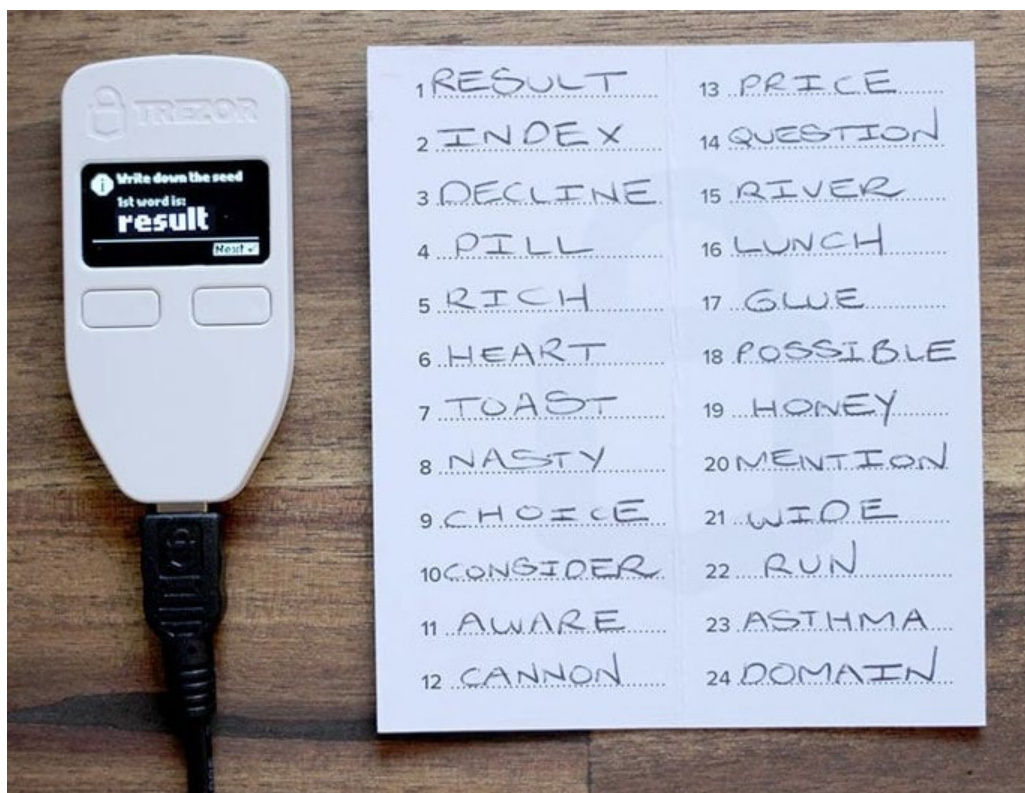 TREZOR
Write down the seed
1st word is:
result
Next ✓
1 RESULT
2 INDEX
3 DECLINE
4 PILL
5 RICH
6 HEART
7 TOAST
8 NASTY
9 CHOICE
10 CONSIDER
11 AWARE
12 CANNON
13 PRICE
14 QUESTION
15 RIVER
16 LUNCH
17 GLUE
18 POSSIBLE
19 HONEY
20 MENTION
21 WIDE
22 RUN
23 ASTHMA
24 DOMAIN